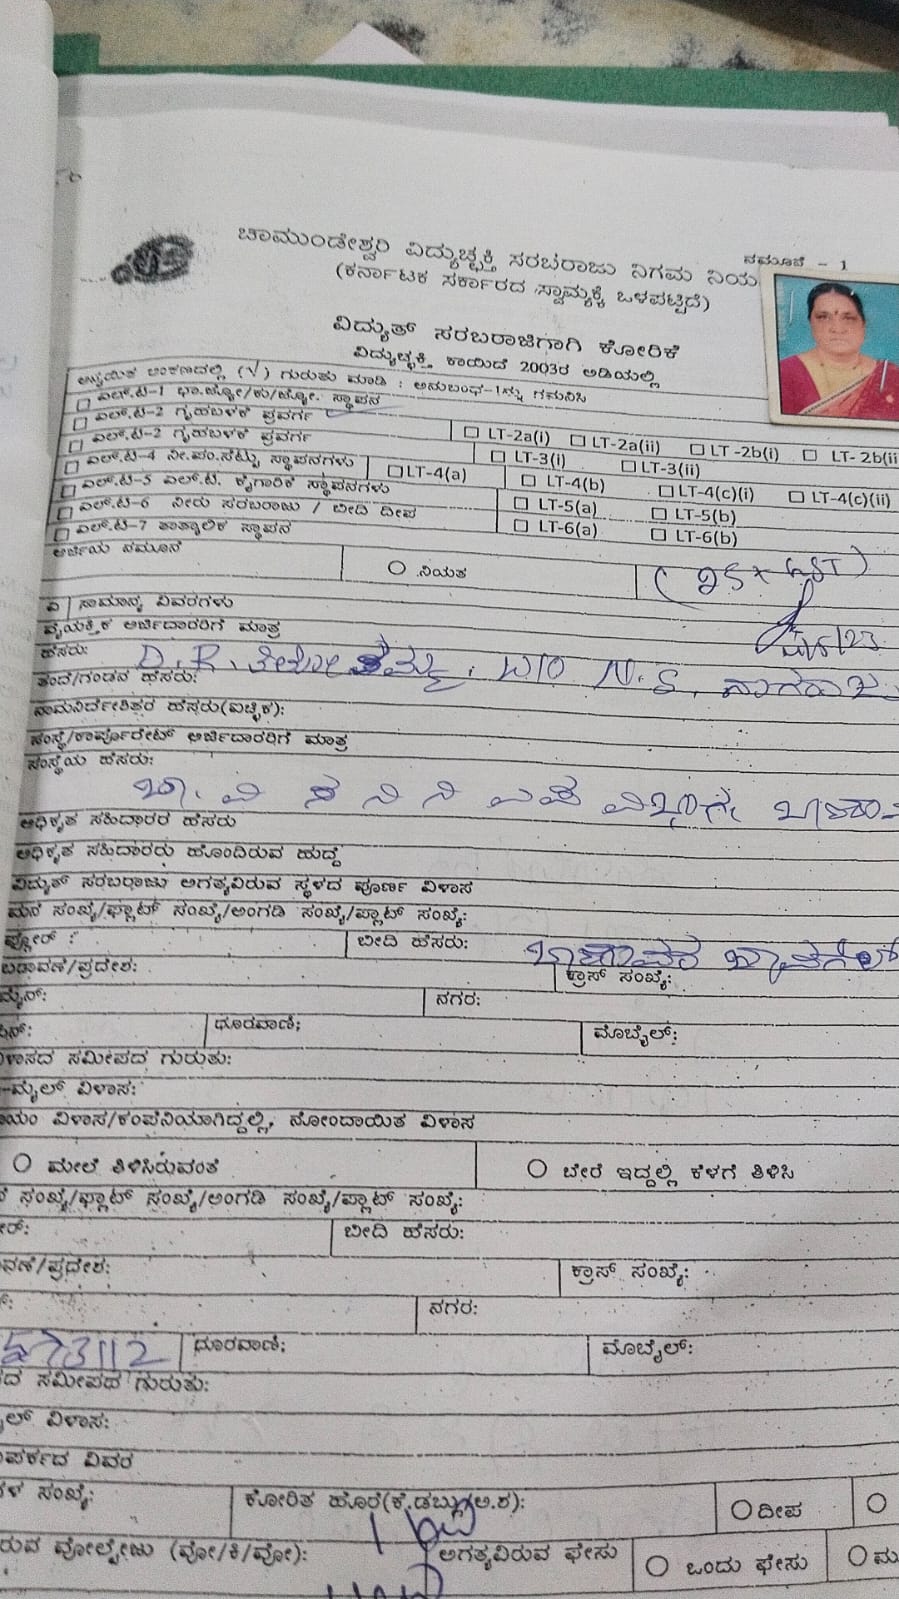 ನಮೂನೆ - 1
ಚಾಮುಂಡೇಶ್ವರಿ ವಿದ್ಯುಚ್ಛಕ್ತಿ ಸರಬರಾಜು ನಿಗಮ ನಿಯ
(ಕರ್ನಾಟಕ ಸರ್ಕಾರದ ಸ್ವಾಮ್ಯಕ್ಕೆ ಒಳಪಟ್ಟಿದೆ)
ವಿದ್ಯುತ್ ಸರಬರಾಜಿಗಾಗಿ ಕೋರಿಕೆ
ವಿದ್ಯುಚ್ಛಕ್ತಿ ಕಾಯಿದೆ 2003ರ ಅಡಿಯಲ್ಲಿ
ಅನ್ವಯಿತ ಅಂಕಣದಲ್ಲಿ (√) ಗುರುತು ಮಾಡಿ : ಅನುಬಂಧ-1ನ್ನು ಗಮನಿಸಿ
ಎಲ್.ಟಿ-1 ಭಾ.ಜ್ಯೋ/ಕು/ಜ್ಯೋ. ಸ್ಥಾಪನ
ಎಲ್.ಟಿ-2 ಗೃಹಬಳಕೆ ಪ್ರವರ್ಗ LT-2a(i) LT-2a(ii) LT -2b(i) LT- 2b(ii
ಎಲ್.ಟಿ-2 ಗೃಹಬಳಕೆ ಪ್ರವರ್ಗ LT-3(i) LT-3(ii)
ಎಲ್.ಟಿ-4 ನೀ.ಪಂ.ಸೆಟ್ಟು ಸ್ಥಾಪನಗಳು LT-4(a) LT-4(b) LT-4(c)(i) LT-4(c)(ii)
ಎಲ್.ಟಿ-5 ಎಲ್.ಟಿ. ಕೈಗಾರಿಕೆ ಸ್ಥಾಪನಗಳು LT-5(a) LT-5(b)
ಎಲ್.ಟಿ-6 ನೀರು ಸರಬರಾಜು / ಬೀದಿ ದೀಪ LT-6(a) LT-6(b)
ಎಲ್.ಟಿ-7 ತಾತ್ಕಾಲಿಕ ಸ್ಥಾಪನ
ಅರ್ಜಿಯ ನಮೂನೆ ನಿಯತ (25+GST)
ಎ ಸಾಮಾನ್ಯ ವಿವರಗಳು
ವೈಯಕ್ತಿಕ ಅರ್ಜಿದಾರರಿಗೆ ಮಾತ್ರ
ಹೆಸರು: D.R. W/O N.S. ನಾಗರಾಜು
ತಂದೆ/ಗಂಡನ ಹೆಸರು:
ನಾಮನಿರ್ದೇಶಿತರ ಹೆಸರು(ಐಚ್ಛಿಕ):
ಸಂಸ್ಥೆ/ಕಾರ್ಪೊರೇಟ್ ಅರ್ಜಿದಾರರಿಗೆ ಮಾತ್ರ
ಸಂಸ್ಥೆಯ ಹೆಸರು:
ಅಧಿಕೃತ ಸಹಿದಾರರ ಹೆಸರು
ಅಧಿಕೃತ ಸಹಿದಾರರು ಹೊಂದಿರುವ ಹುದ್ದೆ
ವಿದ್ಯುತ್ ಸರಬರಾಜು ಅಗತ್ಯವಿರುವ ಸ್ಥಳದ ಪೂರ್ಣ ವಿಳಾಸ
ಮನೆ ಸಂಖ್ಯೆ/ಫ್ಲಾಟ್ ಸಂಖ್ಯೆ/ಅಂಗಡಿ ಸಂಖ್ಯೆ/ಪ್ಲಾಟ್ ಸಂಖ್ಯೆ:
ಫ್ಲೋರ್ : ಬೀದಿ ಹೆಸರು:
ಬಡಾವಣೆ/ಪ್ರದೇಶ: ಕ್ರಾಸ್ ಸಂಖ್ಯೆ:
ಮೈನ್: ನಗರ:
ಪಿನ್: ಧೂರವಾಣಿ; ಮೊಬೈಲ್:
ಳಾಸದ ಸಮೀಪದ ಗುರುತು:
-ಮೈಲ್ ವಿಳಾಸ:
ಾಯಂ ವಿಳಾಸ/ಕಂಪೆನಿಯಾಗಿದ್ದಲ್ಲಿ, ನೋಂದಾಯಿತ ವಿಳಾಸ
ಮೇಲೆ ತಿಳಿಸಿರುವಂತೆ ಬೇರೆ ಇದ್ದಲ್ಲಿ ಕೆಳಗೆ ತಿಳಿಸಿ
ಸಂಖ್ಯೆ/ಫ್ಲಾಟ್ ಸಂಖ್ಯೆ/ಅಂಗಡಿ ಸಂಖ್ಯೆ/ಪ್ಲಾಟ್ ಸಂಖ್ಯೆ:
ೋರ್: ಬೀದಿ ಹೆಸರು:
ವಣೆ/ಪ್ರದೇಶ: ಕ್ರಾಸ್ ಸಂಖ್ಯೆ:
ನಗರ:
573112 ಧೂರವಾಣಿ; ಮೊಬೈಲ್:
ದ ಸಮೀಪದ ಗುರುತು:
ೈಲ್ ವಿಳಾಸ:
ಂಪರ್ಕದ ವಿವರ
ಗಳ ಸಂಖ್ಯೆ: ಕೋರಿತ ಹೊರೆ(ಕೆ.ಡಬ್ಲು/ಅ.ಶ): 1 kw ದೀಪ
ರುವ ವೋಲ್ಟೇಜು (ವೋ/ಕಿ/ವೋ): ಅಗತ್ಯವಿರುವ ಫೇಸು ಒಂದು ಫೇಸು